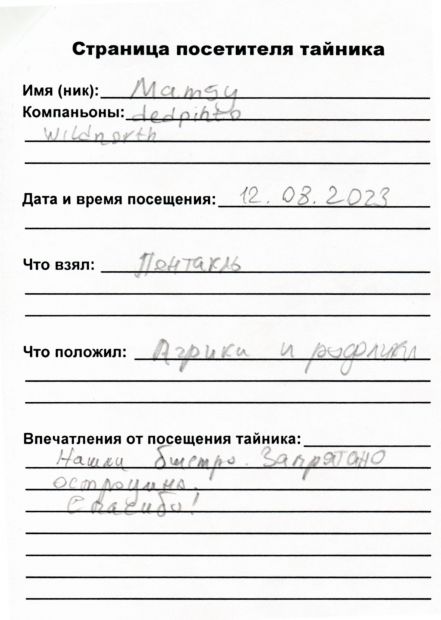 Страница посетителя тайника
Имя (ник): Mamsy
Компаньоны: dedpihto
wildnorth
Дата и время посещения: 12.08.2023
Что взял: Пентакль
Что положил: и
Впечатления от посещения тайника:
Нашли быстро. Запрятано
остроумно.
Спасибо!